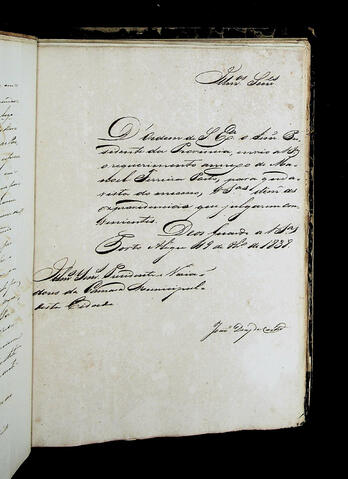 Illmos. Senres.
D'Ordem de S. Exa. o Snr. Pre-
sidente da Provincia, envio a VSas
o requerimento annexo de Ma-
noel Ferreira Porto, para que a
vista do mesmo, VSas dem as
expendiencias que julgarem con-
venientes. Deos Guarde a VSas
Porto Alegre 19 de de 1838
Illmos. Snres. Prezidente e Verea-
dores da Camara Municipal
desta Cidade
João Dias de Castro